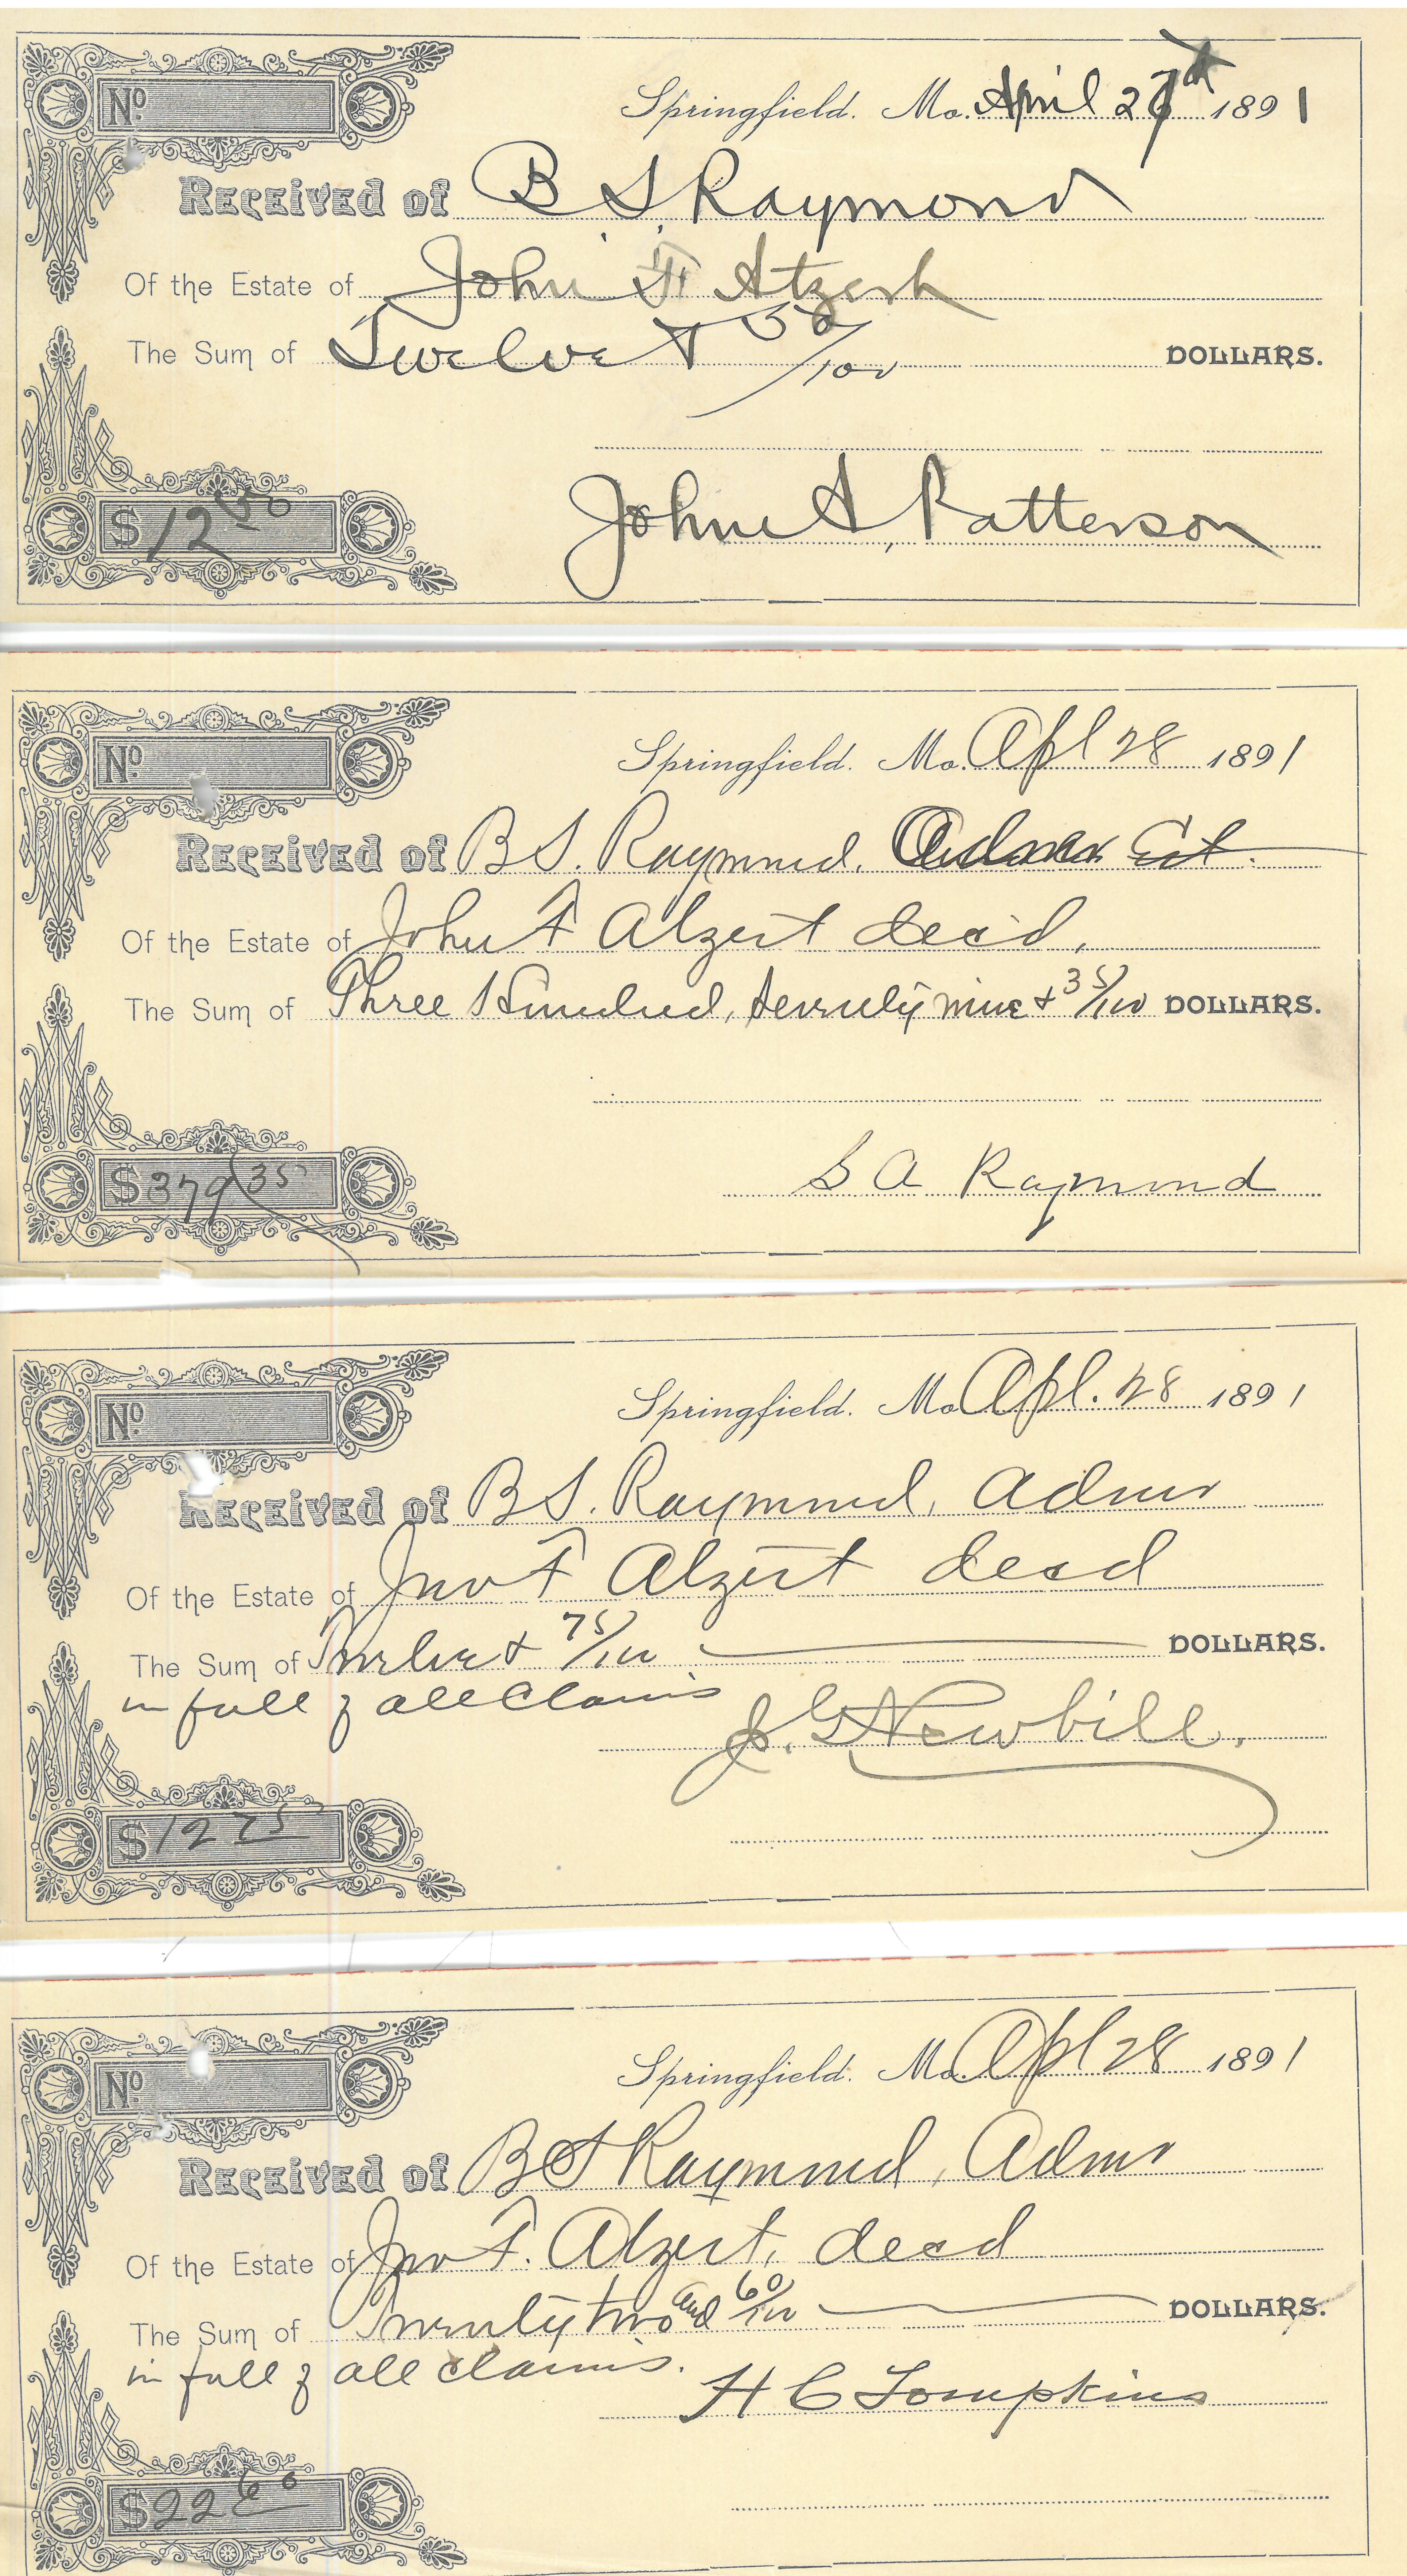 No.
Springfield. Mo. April 27th 1891
Received of B S Raymond
Of the Estate of John F Atzert
The Sum of Twelve & 50/100 DOLLARS.
John A, Patterson
$12 50
No.
Springfield. Mo. Apl 28 1891
Received of B S. Raymond. Admr Est.
Of the Estate of John F Alzert decd,
The Sum of Three Hundred, seventy nine & 35/100 DOLLARS.
S A Raymond
$379 35
No.
Springfield. Mo Apl. 28 1891
Received of B S. Raymond, Admr
Of the Estate of Jno F Alzert decd
The Sum of Twelve & 75/100 DOLLARS.
in full of all Claims
J. G. Newbill.
$12 75
No.
Springfield. Mo. Apl 28 1891
Received of B S Raymond, Admr
Of the Estate of Jno F. Alzert, decd
The Sum of Twenty two and 60/100 DOLLARS.
in full of all claims.
H C Tompkins
$22 60